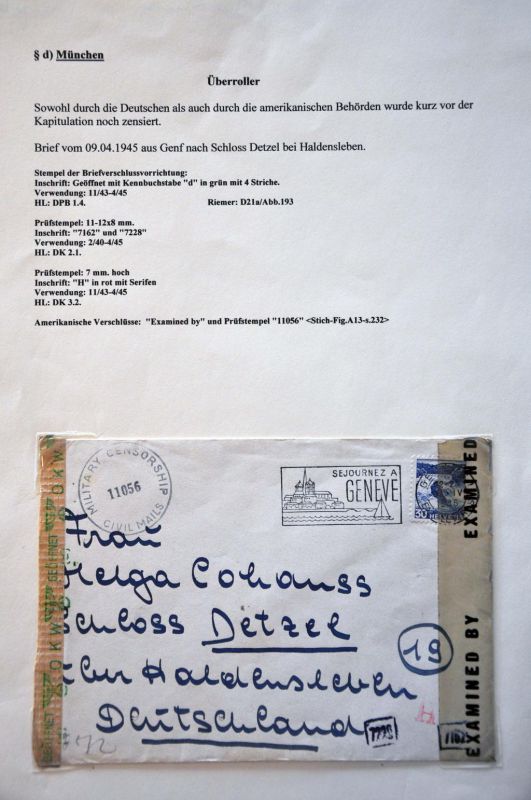 § d) München
Überroller
Sowohl durch die Deutschen als auch durch die amerikanischen Behörden wurde kurz vor der
Kapitulation noch zensiert.
Brief vom 09.04.1945 aus Genf nach Schloss Detzel bei Haldensleben.
Stempel der Briefverschlussvorrichtung:
Inschrift: Geöffnet mit Kennbuchstabe "d" in grün mit 4 Striche.
Verwendung: 11/43-4/45
HL: DPB 1.4. Riemer: D21a/Abb.193
Prüfstempel: 11-12x8 mm.
Inschrift: "7162" und "7228"
Verwendung: 2/40-4/45
HL: DK 2.1.
Prüfstempel: 7 mm. hoch
Inschrift: "H" in rot mit Serifen
Verwendung: 11/43-4/45
HL: DK 3.2.
Amerikanische Verschlüsse: "Examined by" und Prüfstempel "11056" <Stich-Fig.A13-s.232>
MILITARY CENSORSHIP
11056
CIVIL MAILS
SEJOURNEZ A
GENEVE
30 HELVETIA
EXAMINED
EXAMINED BY
GEÖFFNET
OKW
Frau
Helga Cohauss
Schloss Detzel
über Haldensleben
Deutschland
19
H
7228
7162